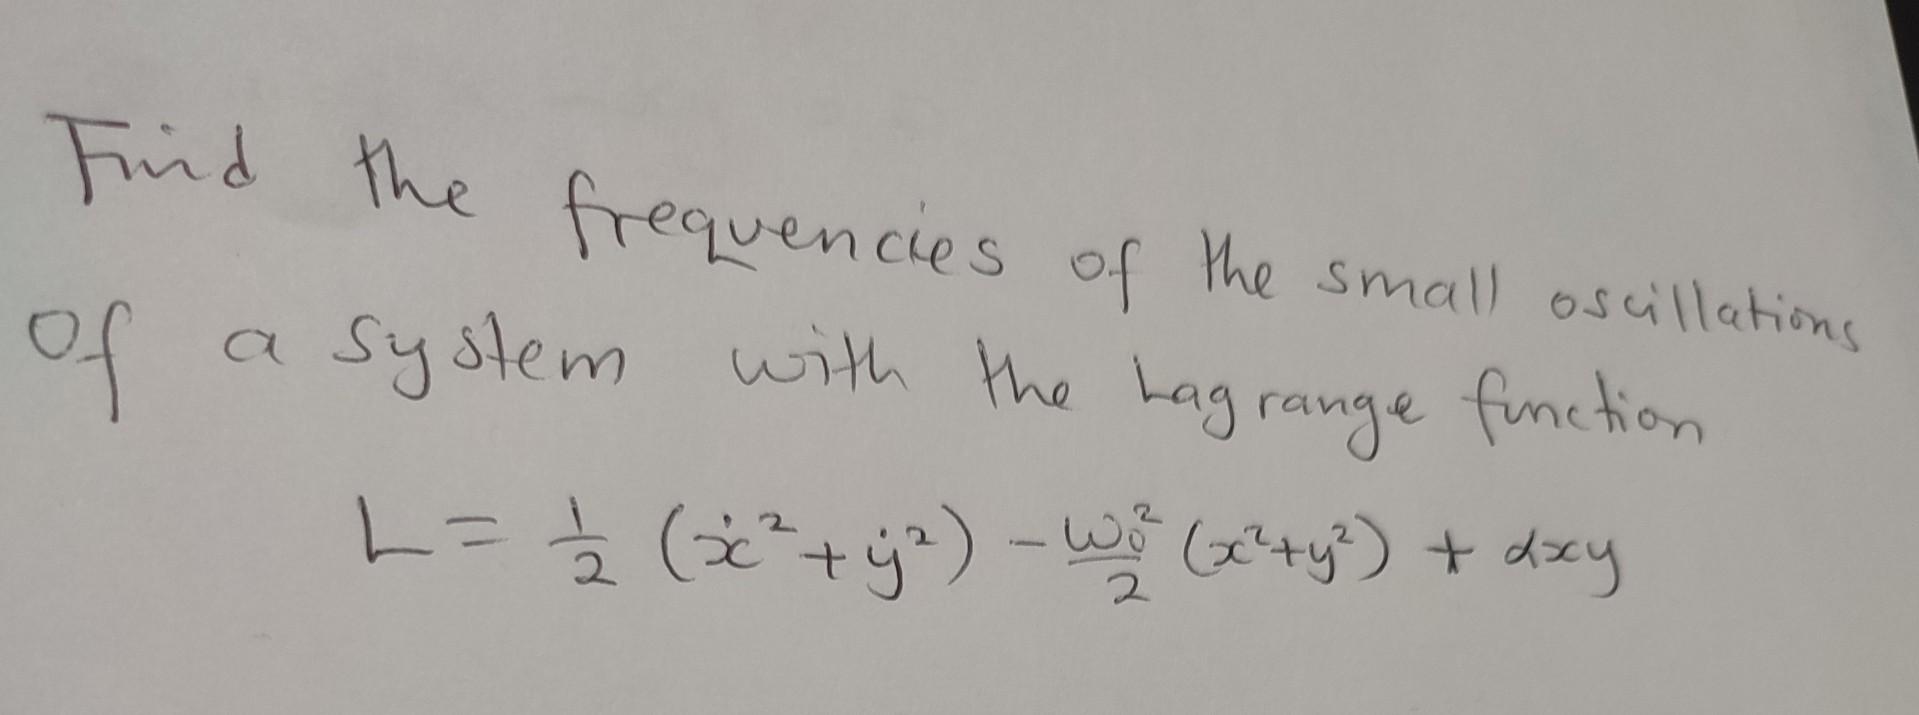 Find the frequencies of the small oscillations
of a system with the Lagrange function
L = 1/2 (ẋ² + ẏ²) - ω₀²/2 (x² + y²) + αxy